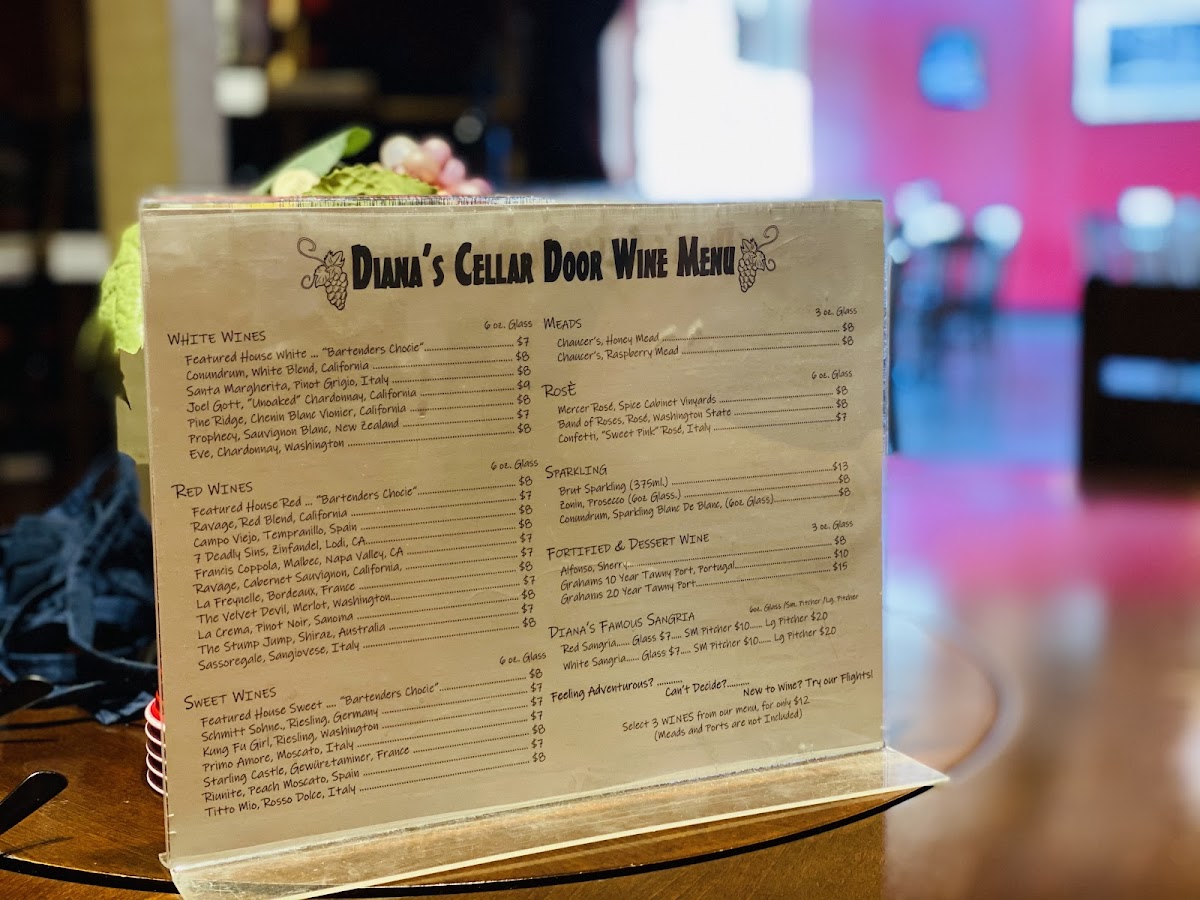 DIANA'S CELLAR DOOR WINE MENU
WHITE WINES 6 oz. Glass
Featured House White ... "Bartenders Chocie" $7
Conundrum, White Blend, California $8
Santa Margherita, Pinot Grigio, Italy $8
Joel Gott, "Unoaked" Chardonnay, California $9
Pine Ridge, Chenin Blanc Vionier, California $8
Prophecy, Sauvignon Blanc, New Zealand $7
Eve, Chardonnay, Washington $8
RED WINES 6 oz. Glass
Featured House Red ... "Bartenders Chocie" $8
Ravage, Red Blend, California $7
Campo Viejo, Tempranillo, Spain $8
7 Deadly Sins, Zinfandel, Lodi, CA $8
Francis Coppola, Malbec, Napa Valley, CA $7
Ravage, Cabernet Sauvignon, California, $7
La Freynelle, Bordeaux, France $8
The Velvet Devil, Merlot, Washington $7
La Crema, Pinot Noir, Sanoma $8
The Stump Jump, Shiraz, Australia $7
Sassoregale, Sangiovese, Italy $8
SWEET WINES 6 oz. Glass
Featured House Sweet .... "Bartenders Chocie" $8
Schmitt Sohne., Riesling, Germany $7
Kung Fu Girl, Riesling, Washington $7
Primo Amore, Moscato, Italy $7
Starling Castle, Gewürztaminer, France $8
Riunite, Peach Moscato, Spain $7
Titto Mio, Rosso Dolce, Italy $8
MEADS 3 oz. Glass
Chaucer's, Honey Mead $8
Chaucer's, Raspberry Mead $8
ROSÈ 6 oz. Glass
Mercer Rosé, Spice Cabinet Vinyards $8
Band of Roses, Rosé, Washington State $8
Confetti, "Sweet Pink" Rosé, Italy $7
SPARKLING
Brut Sparkling (375mL) $13
Zonin, Prosecco (6oz Glass.) $8
Conundrum, Sparkling Blanc De Blanc, (6oz Glass) $8
FORTIFIED & DESSERT WINE 3 oz. Glass
Alfonso, Sherry $8
Grahams 10 Year Tawny Port, Portugal $10
Grahams 20 Year Tawny Port $15
DIANA'S FAMOUS SANGRIA 6oz. Glass /Sm. Pitcher /Lg. Pitcher
Red Sangria...... Glass $7.... SM Pitcher $10..... Lg Pitcher $20
White Sangria...... Glass $7.... SM Pitcher $10..... Lg Pitcher $20
Feeling Adventurous? .........
Can't Decide?........
New to Wine? Try our Flights!
Select 3 WINES from our menu, for only $12
(Meads and Ports are not Included)